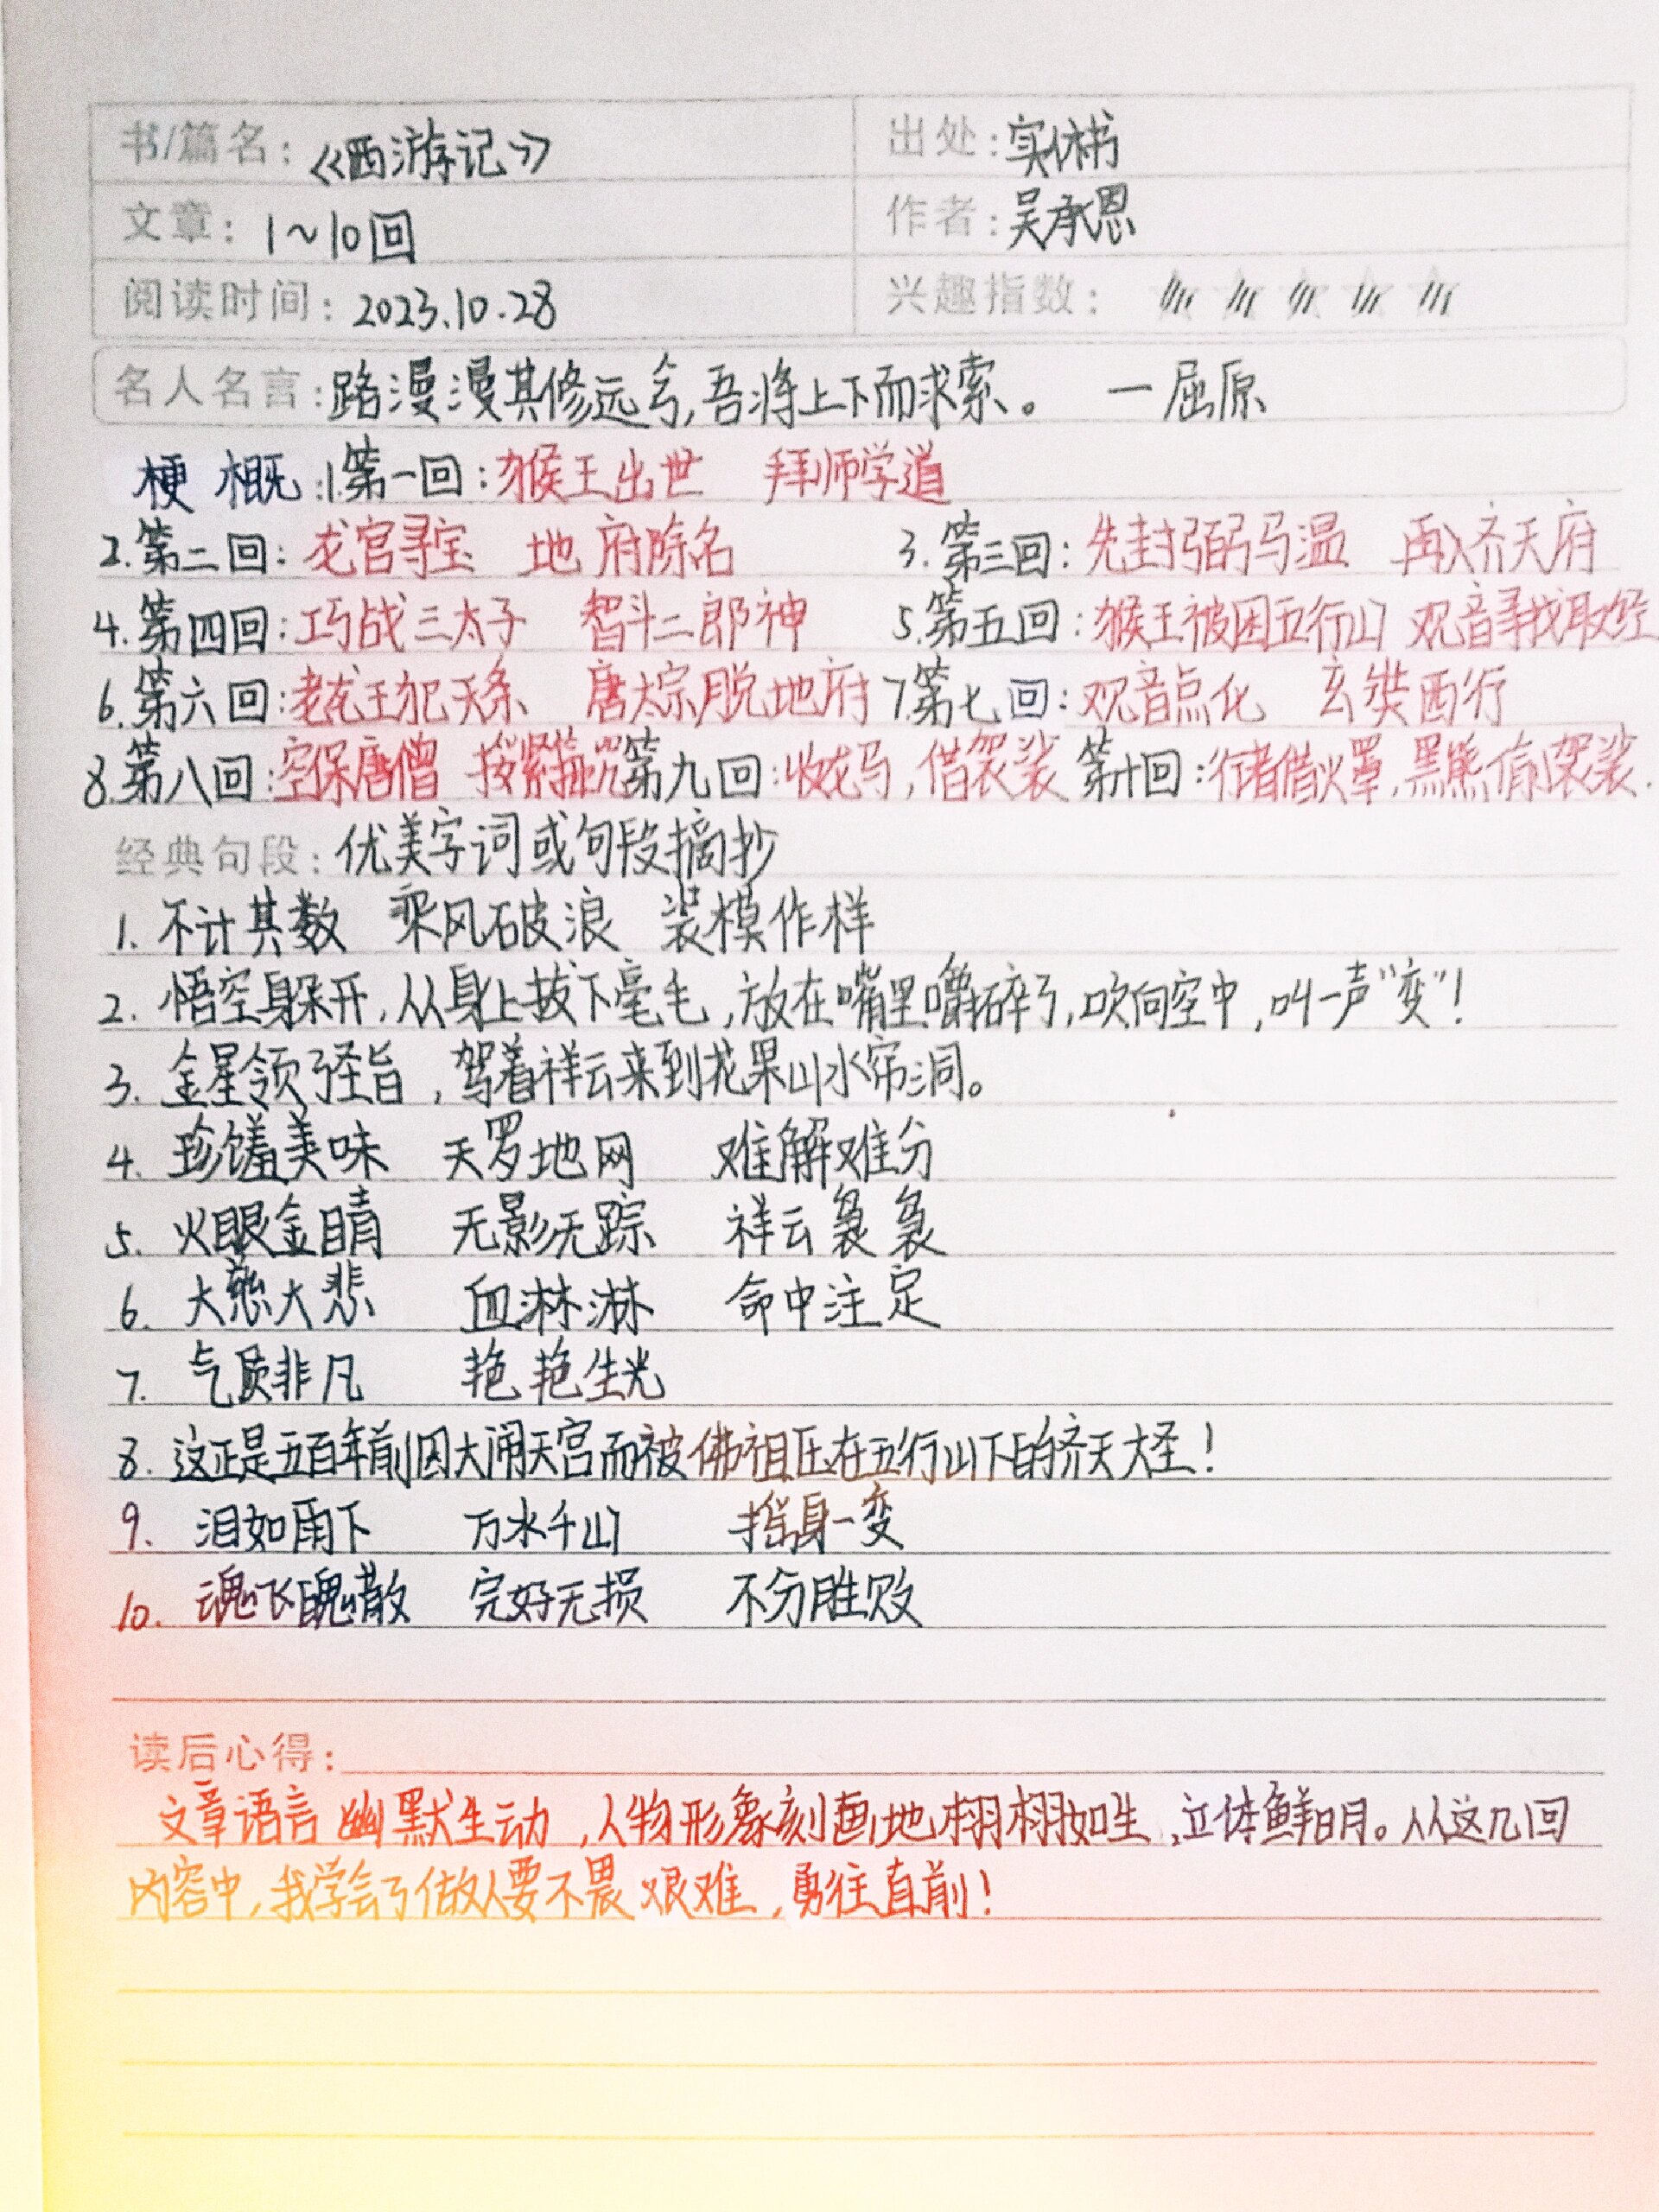 书/篇名：《西游记》 出处：实体书
文章：1～10回 作者：吴承恩
阅读时间：2023.10.28 兴趣指数：
名人名言：路漫漫其修远兮，吾将上下而求索。 —屈原
梗概：1.第一回：猴王出世 拜师学道
2.第二回：龙宫寻宝 地府除名 3.第三回：先封弼马温 再入齐天府
4.第四回：巧战三太子 智斗二郎神 5.第五回：猴王被困五行山 观音寻找取经
6.第六回：老龙王犯天条 唐太宗脱地府 7.第七回：观音点化 玄奘西行
8.第八回：空保唐僧 接紧箍咒 第九回：收龙马，借袈裟 第十回：行者借火罩，黑熊偷袈裟.
经典句段：优美字词或句段摘抄
1. 不计其数 乘风破浪 装模作样
2. 悟空躲开，从身上拔下毫毛，放在嘴里嚼碎了，吹向空中，叫一声“变”！
3. 金星领了圣旨，驾着祥云来到花果山水帘洞。
4. 珍馐美味 天罗地网 难解难分
5. 火眼金睛 无影无踪 祥云袅袅
6. 大慈大悲 血淋淋 命中注定
7. 气质非凡 艳艳生光
8. 这正是五百年前因大闹天宫而被佛祖压在五行山下的齐天大圣！
9. 泪如雨下 万水千山 摇身一变
10. 魂飞魄散 完好无损 不分胜败
读后心得：
文章语言幽默生动，人物形象刻画地栩栩如生，立体鲜明。从这几回
内容中，我学会了做人要不畏艰难，勇往直前！